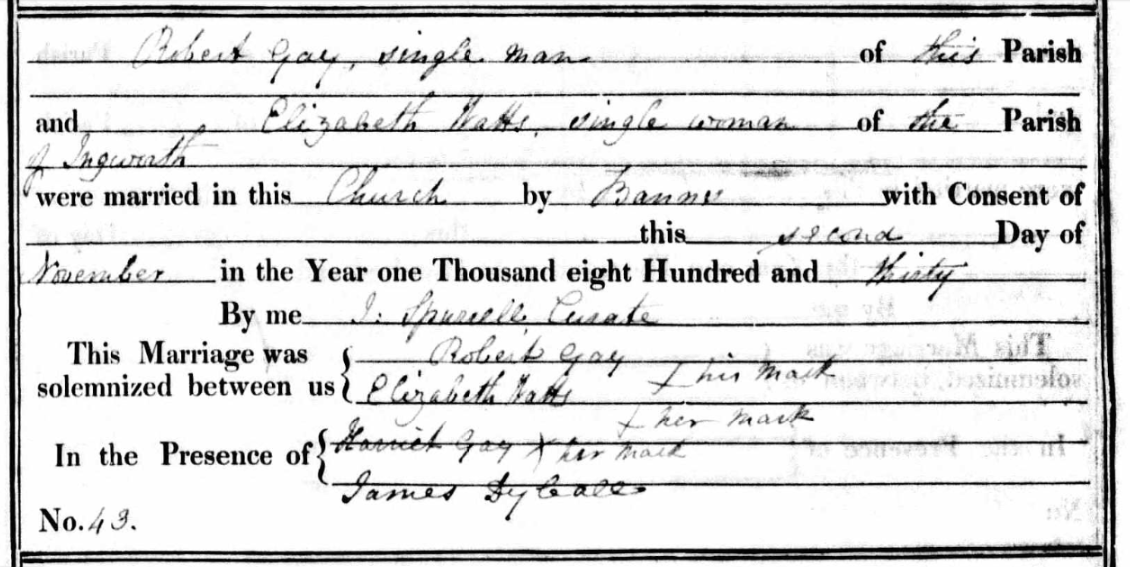 Robert Gay, single man of this Parish
and Elizabeth Watts, single woman of the Parish
of Ingworth
were married in this Church by Banns with Consent of
this second Day of
November in the Year one Thousand eight Hundred and thirty
By me J: Spurell Curate
This Marriage was solemnized between us { Robert Gay + his mark
Elizabeth Watts + her mark
In the Presence of { Harriet Gay X her mark
James Dyball
No. 43.